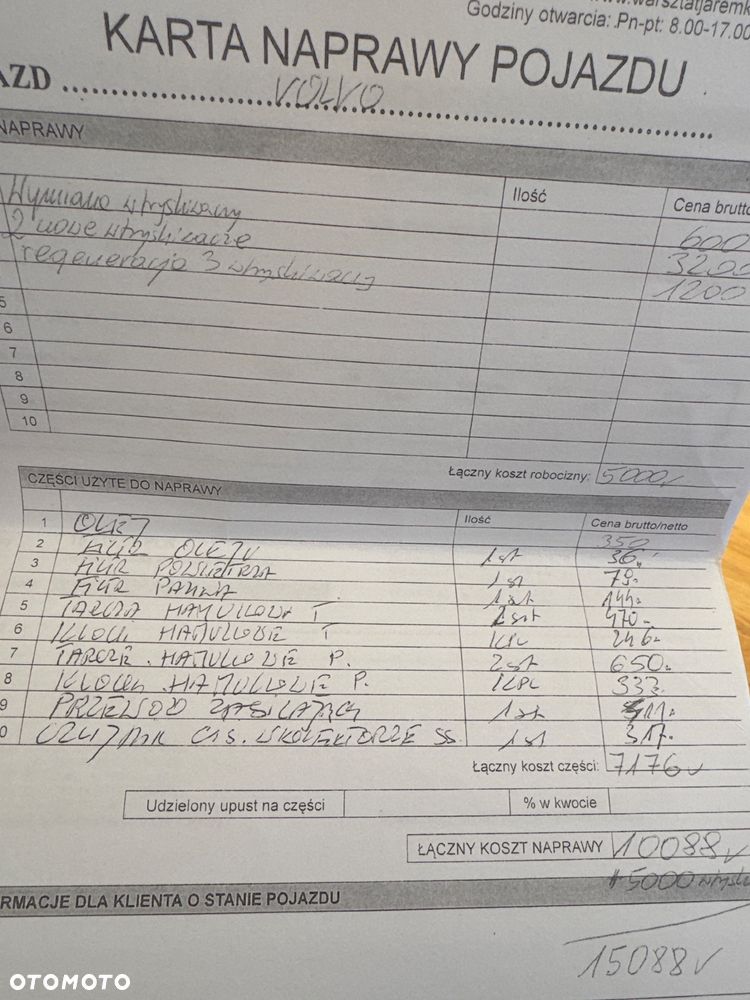 www.warsztatjaremk
Godziny otwarcia: Pn-pt: 8.00-17.00
KARTA NAPRAWY POJAZDU
AZD VOLVO
NAPRAWY
Ilość Cena brutto
Wymiana wtryskiwaczy 600
2 nowe wtryskiwacze 3200
regeneracja 3 wtryskiwaczy 1200
5
6
7
8
9
10
Łączny koszt robocizny: 5000,-
CZĘŚCI UŻYTE DO NAPRAWY
Ilość Cena brutto/netto
1 OLEJ 350
2 FILTR OLEJU 1szt 36,-
3 FILTR POWIETRZA 1szt 79,-
4 FILTR PALIWA 1szt 144,-
5 TARCZA HAMULCOWA T 2szt 470,-
6 KLOCKI HAMULCOWE T 1KPL 246,-
7 TARCZE HAMULCOWE P. 2szt 650,-
8 KLOCKI HAMULCOWE P. 1KPL 333,-
9 PRZEWÓD ZASILAJĄCY 1szt
0 CZUJNIK CIŚ. W KOLEKTORZE SS. 1szt 317,-
Łączny koszt części: 7176
Udzielony upust na części % w kwocie
ŁĄCZNY KOSZT NAPRAWY 10088
+5000
RMACJE DLA KLIENTA O STANIE POJAZDU
15088
OTOMOTO